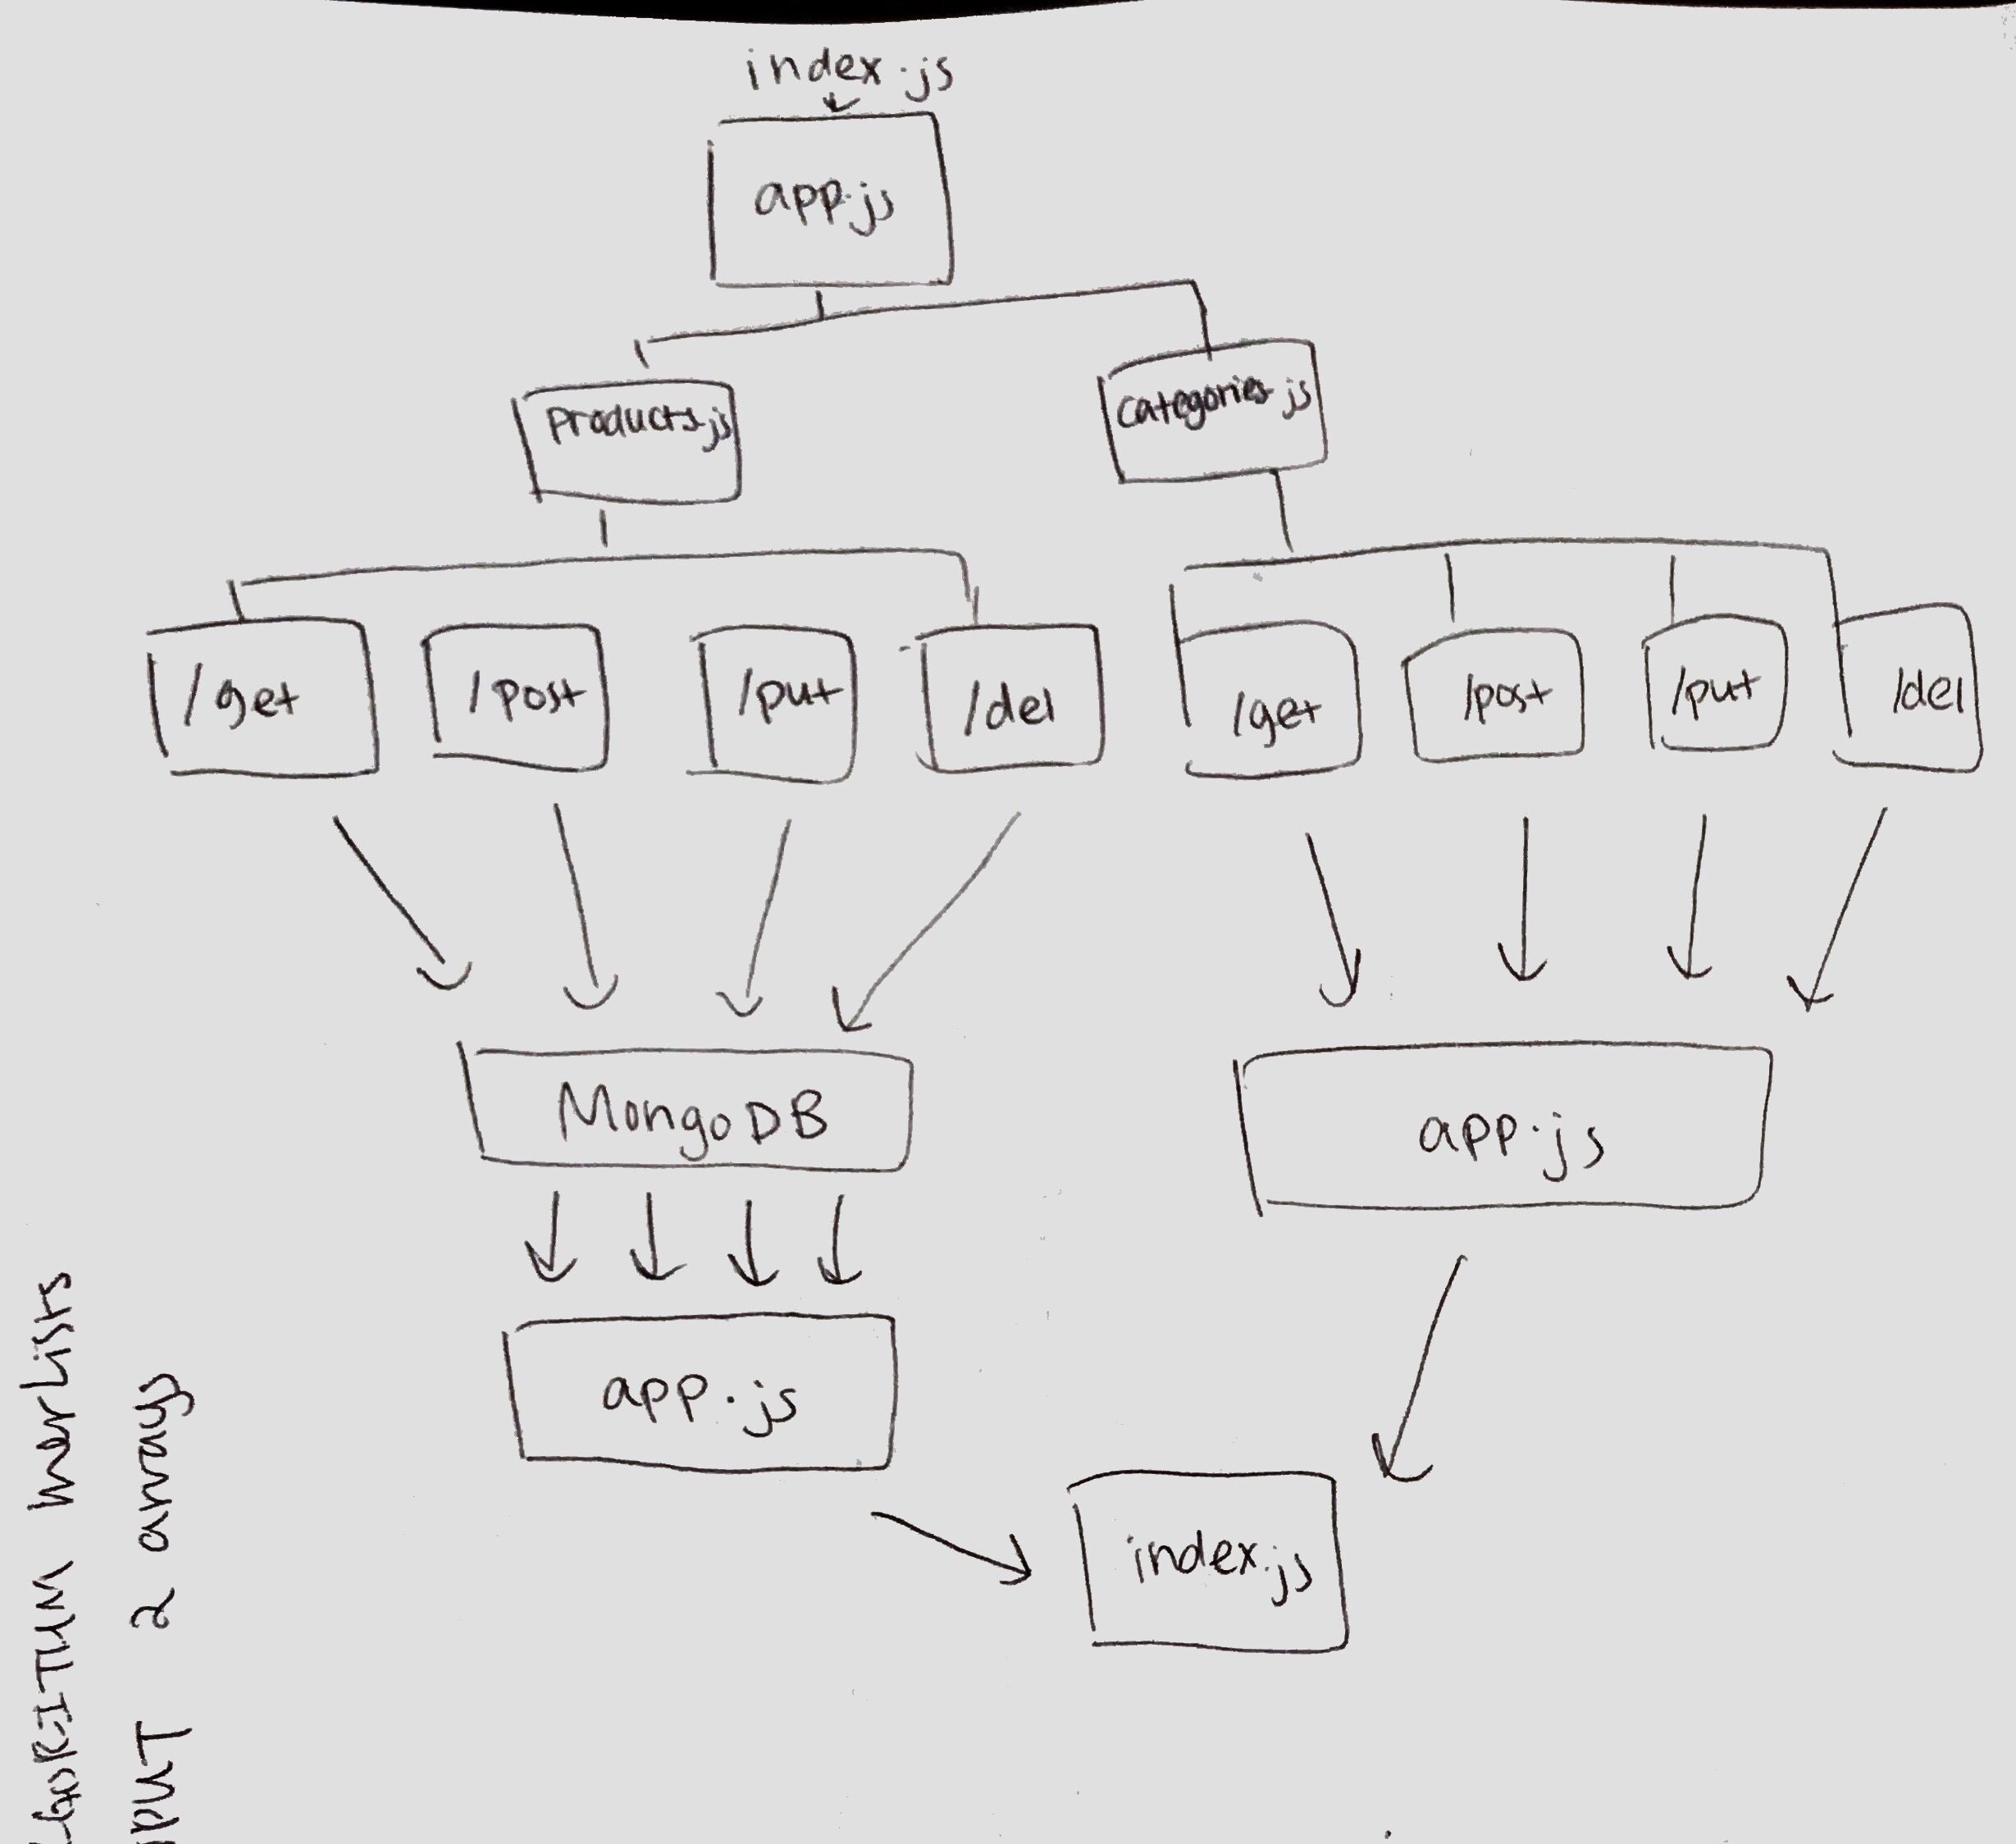 index.js
app.js
products.js
categories.js
/get
/post
/put
/del
/get
/post
/put
/del
MongoDB
app.js
app.js
index.js
2 array